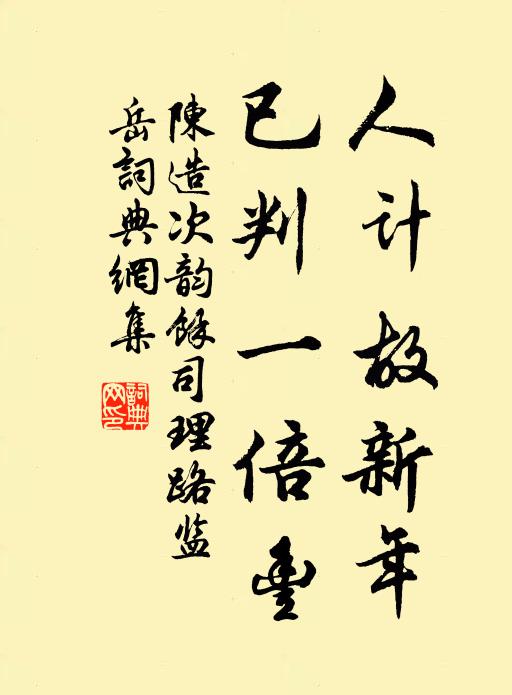 人计故新年
已判一倍豊
陳造次韵餘司理路监
岳詞典網集
詞典網印